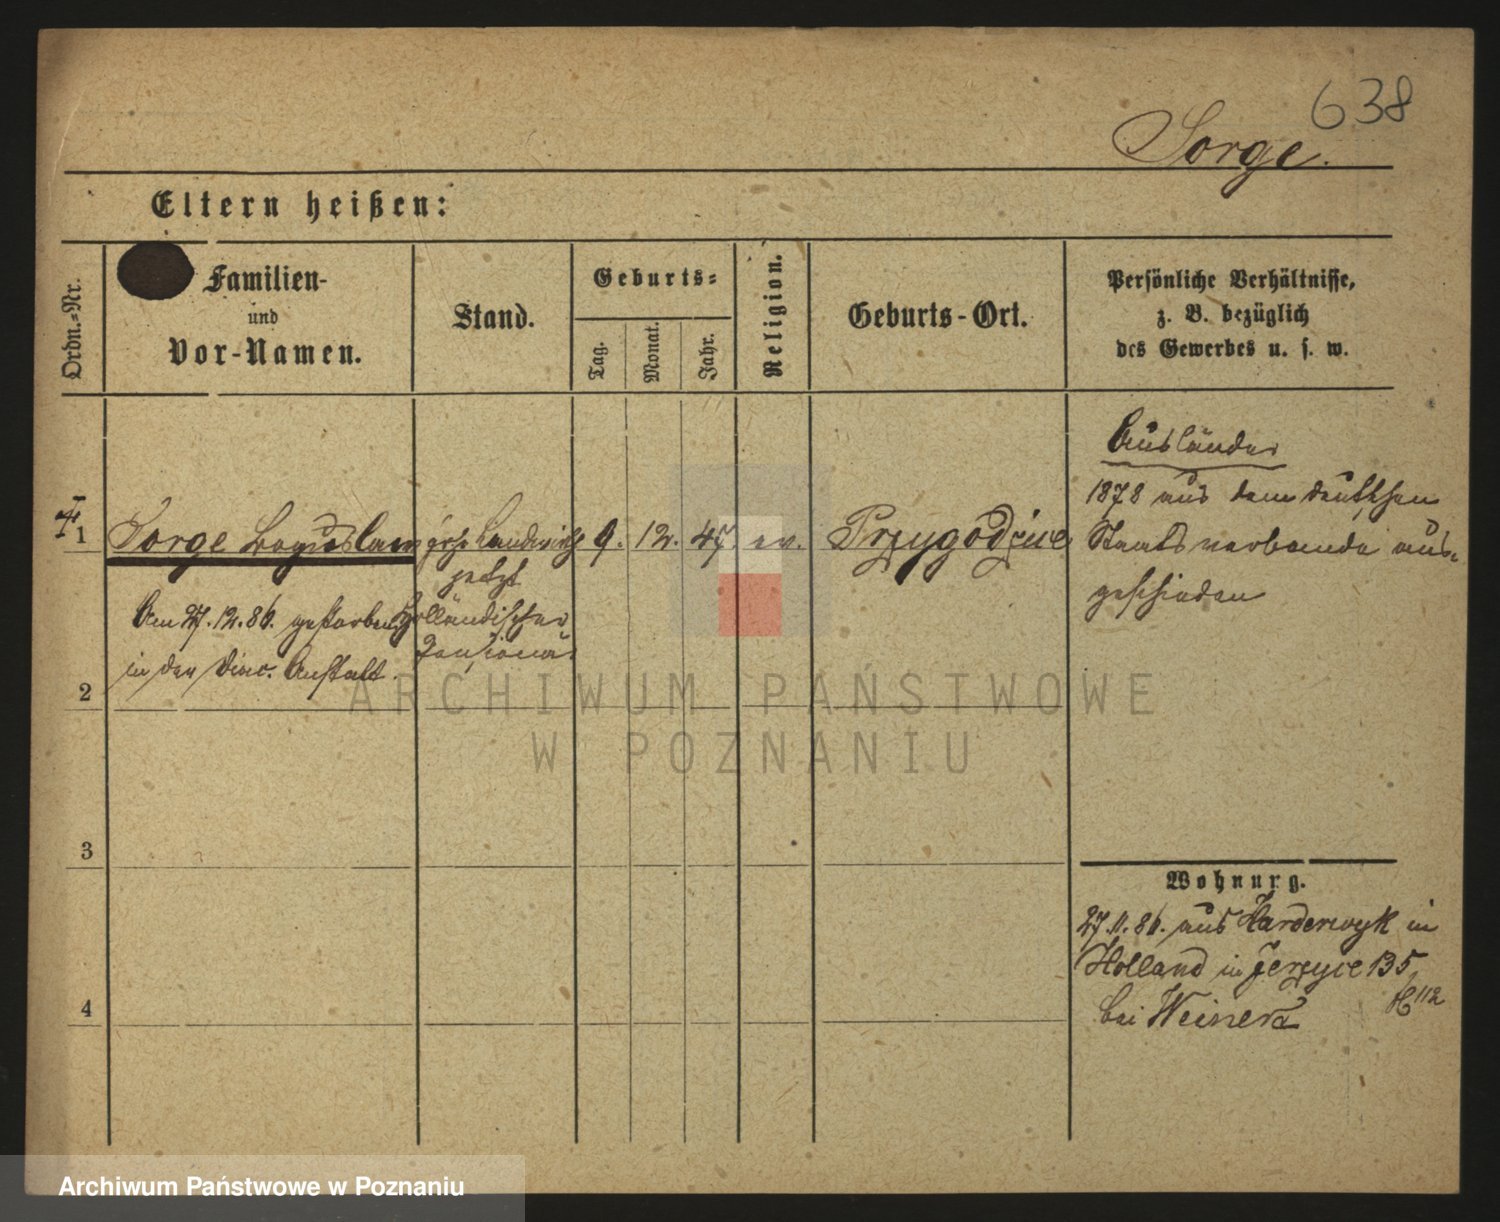 638
Sorge.
Eltern heißen:
Ordn.-Nr.
Familien-
und
Vor-Namen.
Stand.
Geburts-
Tag.
Monat.
Jahr.
Religion.
Geburts-Ort.
Persönliche Verhältnisse,
z. B. bezüglich
des Gewerbes u. s. w.
1
Sorge Boguslaw
früh. Landwirth
jetzt
holländischer
Pensionär
9. 12. 47 ev.
Przygodzice
Am 27.12.86. gestorben
in der Diac. Anstalt.
Ausländer
1878 aus dem deutschen
Staatsverbande aus-
geschieden
2
3
4
Wohnung.
27.11.86. aus Harderwyk in
Holland in Jerzyce 135
bei Weinert
112
ARCHIWUM PAŃSTWOWE
W POZNANIU
Archiwum Państwowe w Poznaniu